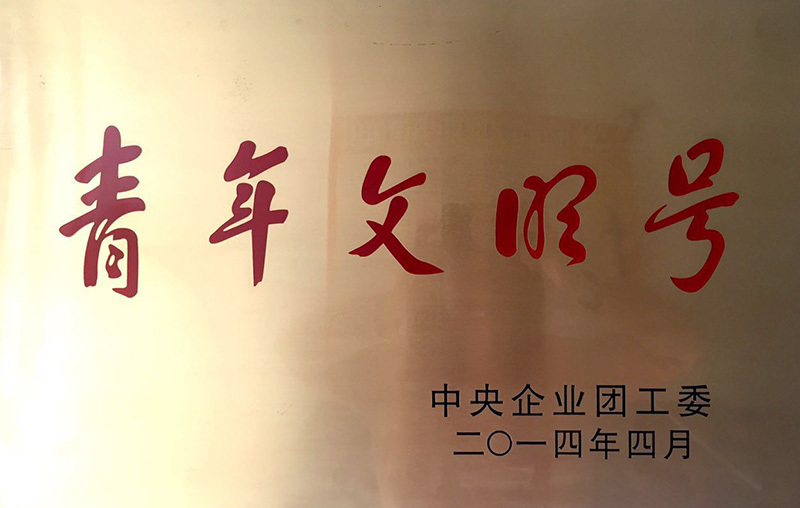 青年文明号
中央企业团工委
二〇一四年四月